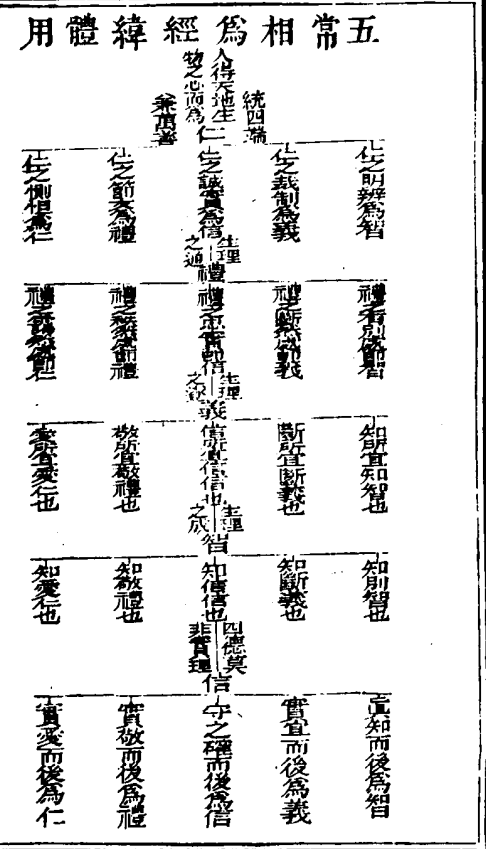 五常相爲經緯體用
人得天地生
物之心而爲
仁
統四端
兼萬善
仁之明辨爲智
仁之裁制爲義
仁之誠實爲信
仁之節文爲禮
仁之惻怛爲仁
生理
之通
禮
禮之有別
禮之
禮之忠實即信
禮之
禮之
生理
之遂
義
知所宜知智也
斷所宜斷義也
信所宜信信也
敬所宜敬禮也
愛所宜愛仁也
生理
之成
智
知別智也
知斷義也
知信信也
知敬禮也
知愛仁也
四德莫
非實理
信
眞知而後爲智
實宜而後爲義
守之確而後爲信
實敬而後爲禮
實愛而後爲仁